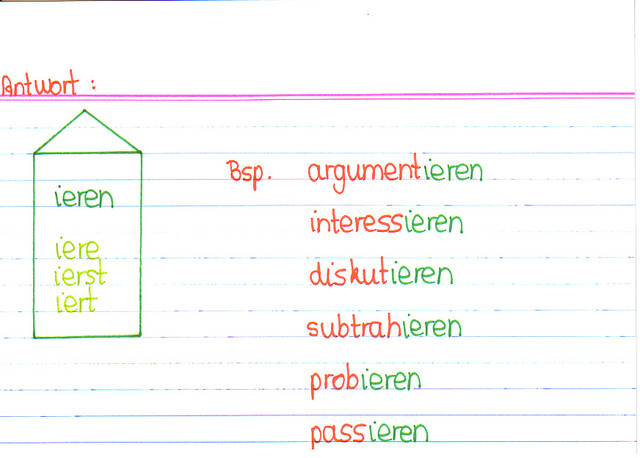 Antwort :
ieren
iere
ierst
iert
Bsp. argumentieren
interessieren
diskutieren
subtrahieren
probieren
passieren